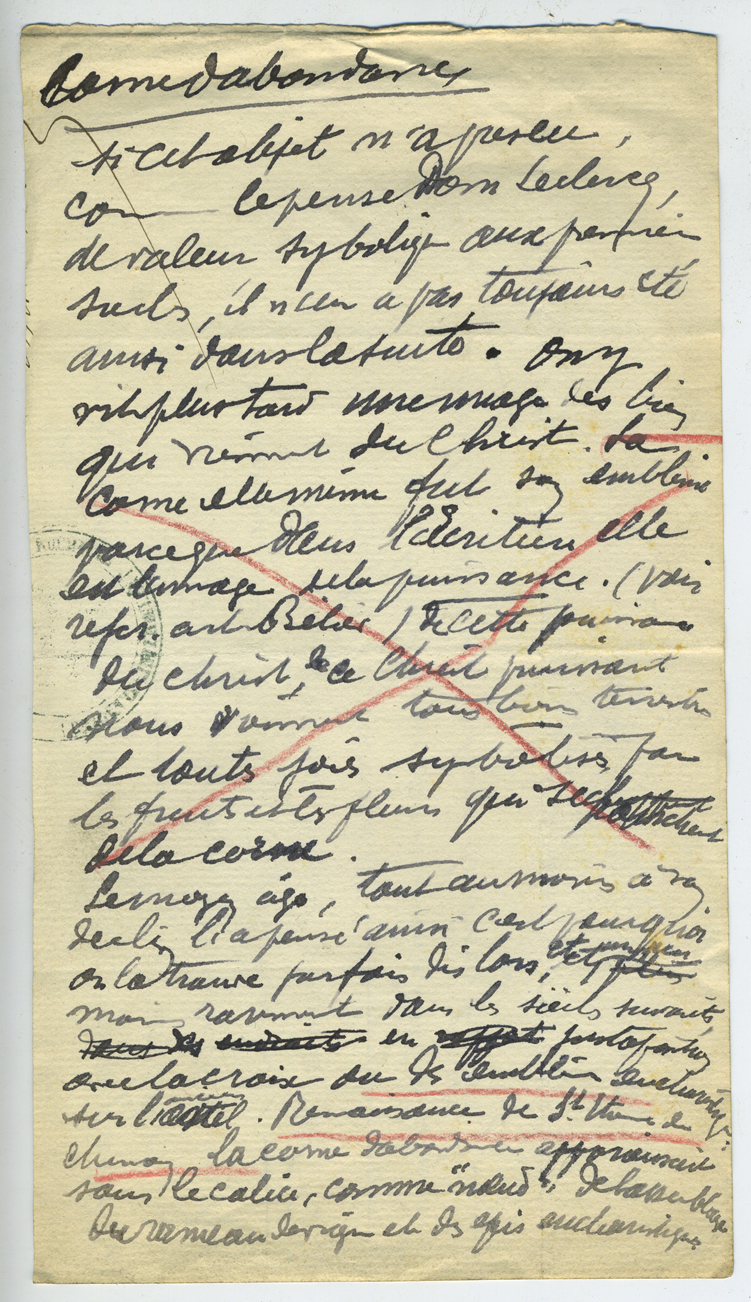 Corne d'abondance
si cet objet n'a pas eu,
com le pense Dom Leclercq,
de valeur sybolique aux premiers
siecles, il n'en a pas toujours été
ainsi dans la suite. On y
vit plus tard une image des biens
qui viennent du Christ. La
corne elle même fut son emblème
parceque dans l'Ecriture elle
est l'image de la puissance. (voir
refer. art. Bélier) de cette puissance
du Christ, de ce Christ puissant
nous viennent tous biens terrestres
et toutes joies symbolisés par
les fruits et les fleurs qui
de la corne.
Le moyen âge, tout au moins à son
declin l'a pensé ainsi c'est pourquoi
on la trouve parfois dès lors, et
moins rarement dans les siècles suivants,
dans des endroits en juxtaposition
avec la croix ou des emblèmes eucharistiques
sur l'autel. Renaissance de St. Etienne de
Chinon la corne d'abondance apparaissait
sous le calice, comme "nœud", de l'assemblage
du rameau de vigne et des épis eucharistiques